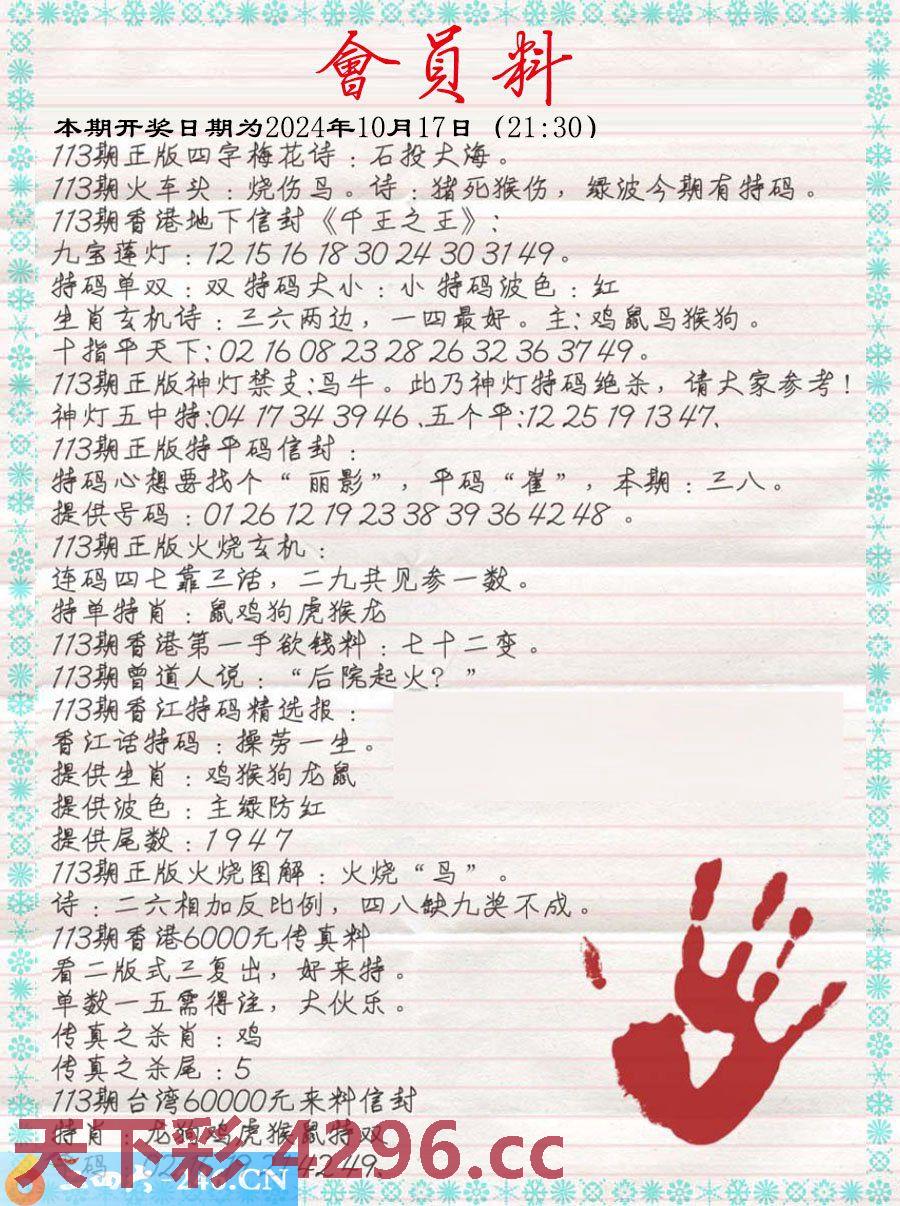 會員料
本期开奖日期为2024年10月17日（21:30）
113期正版四字梅花诗：石投大海。
113期火车头：烧伤鸟。诗：猪死猴伤，绿波今期有特码。
113期香港地下信封《千王之王》:
九宝莲灯：12 15 16 18 30 24 30 31 49。
特码单双：双 特码大小：小 特码波色：红
生肖玄机诗：三六两边，一四最好。主: 鸡鼠马猴狗。
十指平天下: 02 16 08 23 28 26 32 36 37 49。
113期正版神灯禁支:马牛。此乃神灯特码绝杀，请大家参考！
神灯五中特:04 17 34 39 46 .五个平:12 25 19 13 47.
113期正版特平码信封：
特码心想要找个“丽影”，平码“崔”，本期：三八。
提供号码：01 26 12 19 23 38 39 36 42 48 。
113期正版火烧玄机：
连码四七靠三话，二九共见参一数。
特单特肖：鼠鸡狗虎猴龙
113期香港第一手欲钱料：七十二变。
113期曾道人说：“后院起火？”
113期香江特码精选报：
香江话特码：操劳一生。
提供生肖：鸡猴狗龙鼠
提供波色：主绿防红
提供尾数：1 9 4 7
113期正版火烧图解：火烧“鸟”。
诗：二六相加反比例，四八缺九奖不成。
113期香港6000元传真料
看二版式三复出，好来特。
单数一五需得注，大伙乐。
传真之杀肖：鸡
传真之杀尾：5
113期台湾60000元来料信封
特肖：龙狗鸡虎猴鼠特双
天下彩 4296.cc
42 49.
246.CN